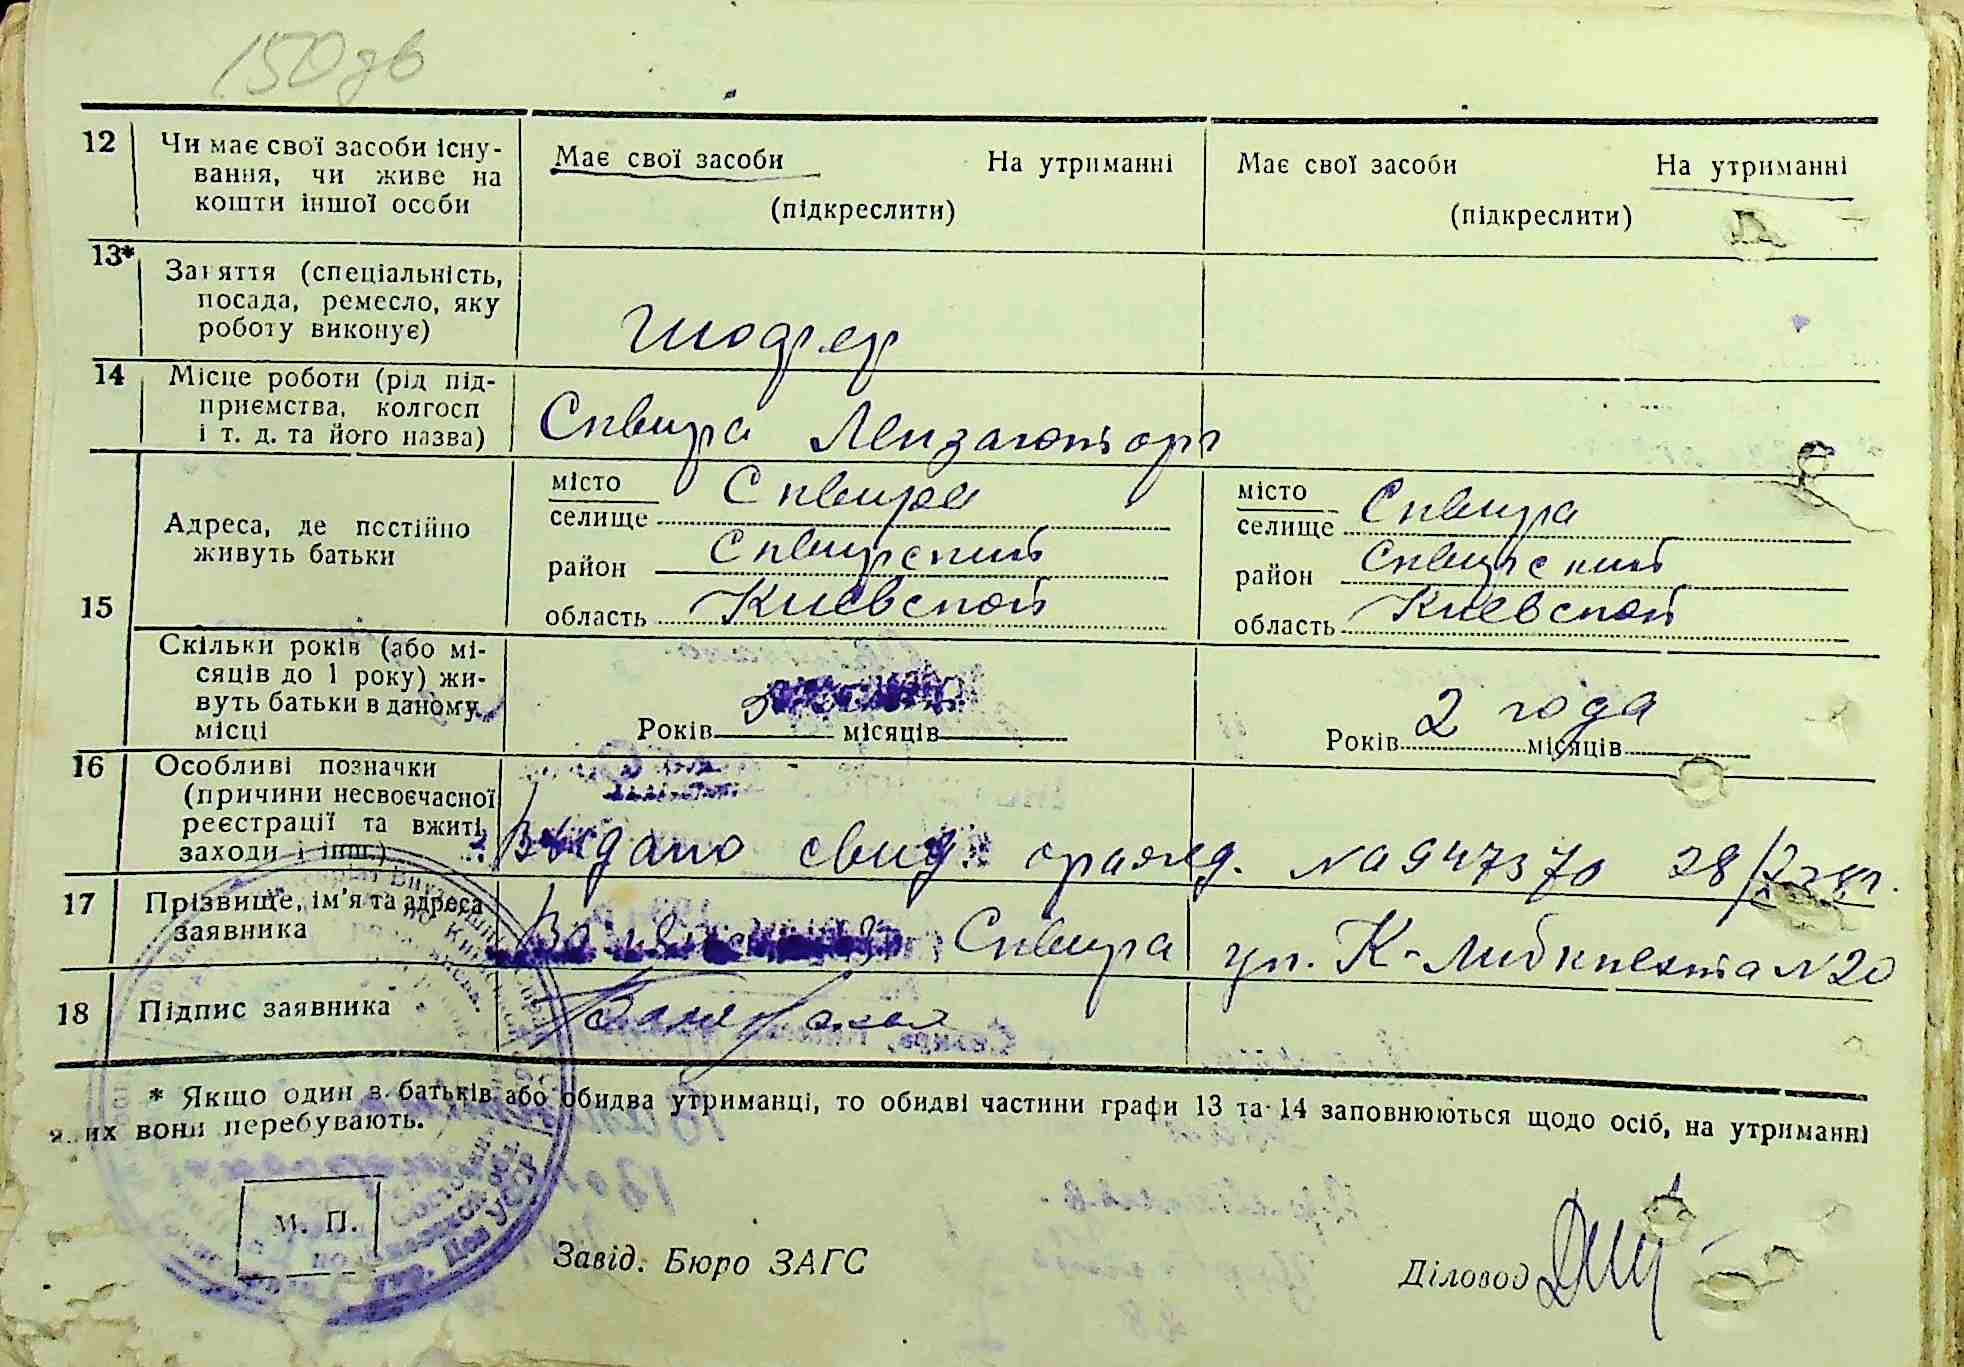 150 зв
12 Чи має свої засоби існу-
вання, чи живе на
кошти іншої особи
Має свої засоби На утриманні
(підкреслити)
Має свої засоби На утриманні
(підкреслити)
13* Заняття (спеціальність,
посада, ремесло, яку
роботу виконує)
Шофер
14 Місце роботи (рід під-
приємства, колгосп
і т. д. та його назва)
Сквира
15 Адреса, де постійно
живуть батьки
місто
селище Сквира
район Сквирский
область Киевской
місто
селище Сквира
район Сквирский
область Киевской
Скільки років (або мі-
сяців до 1 року) жи-
вуть батьки в даному
місці
Років місяців
Років 2 года місяців
16 Особливі позначки
(причини несвоєчасної
реєстрації та вжиті
заходи і інш.)
Выдано свид. о рожд. № 947370 28/
17 Прізвище, ім'я та адреса
заявника
Сквира ул. К-Либкнехта №20
18 Підпис заявника
* Якщо один з батьків або обидва утриманці, то обидві частини графи 13 та 14 заповнюються щодо осіб, на утриманні
яких вони перебувають.
М. П.
Завід. Бюро ЗАГС
Діловод